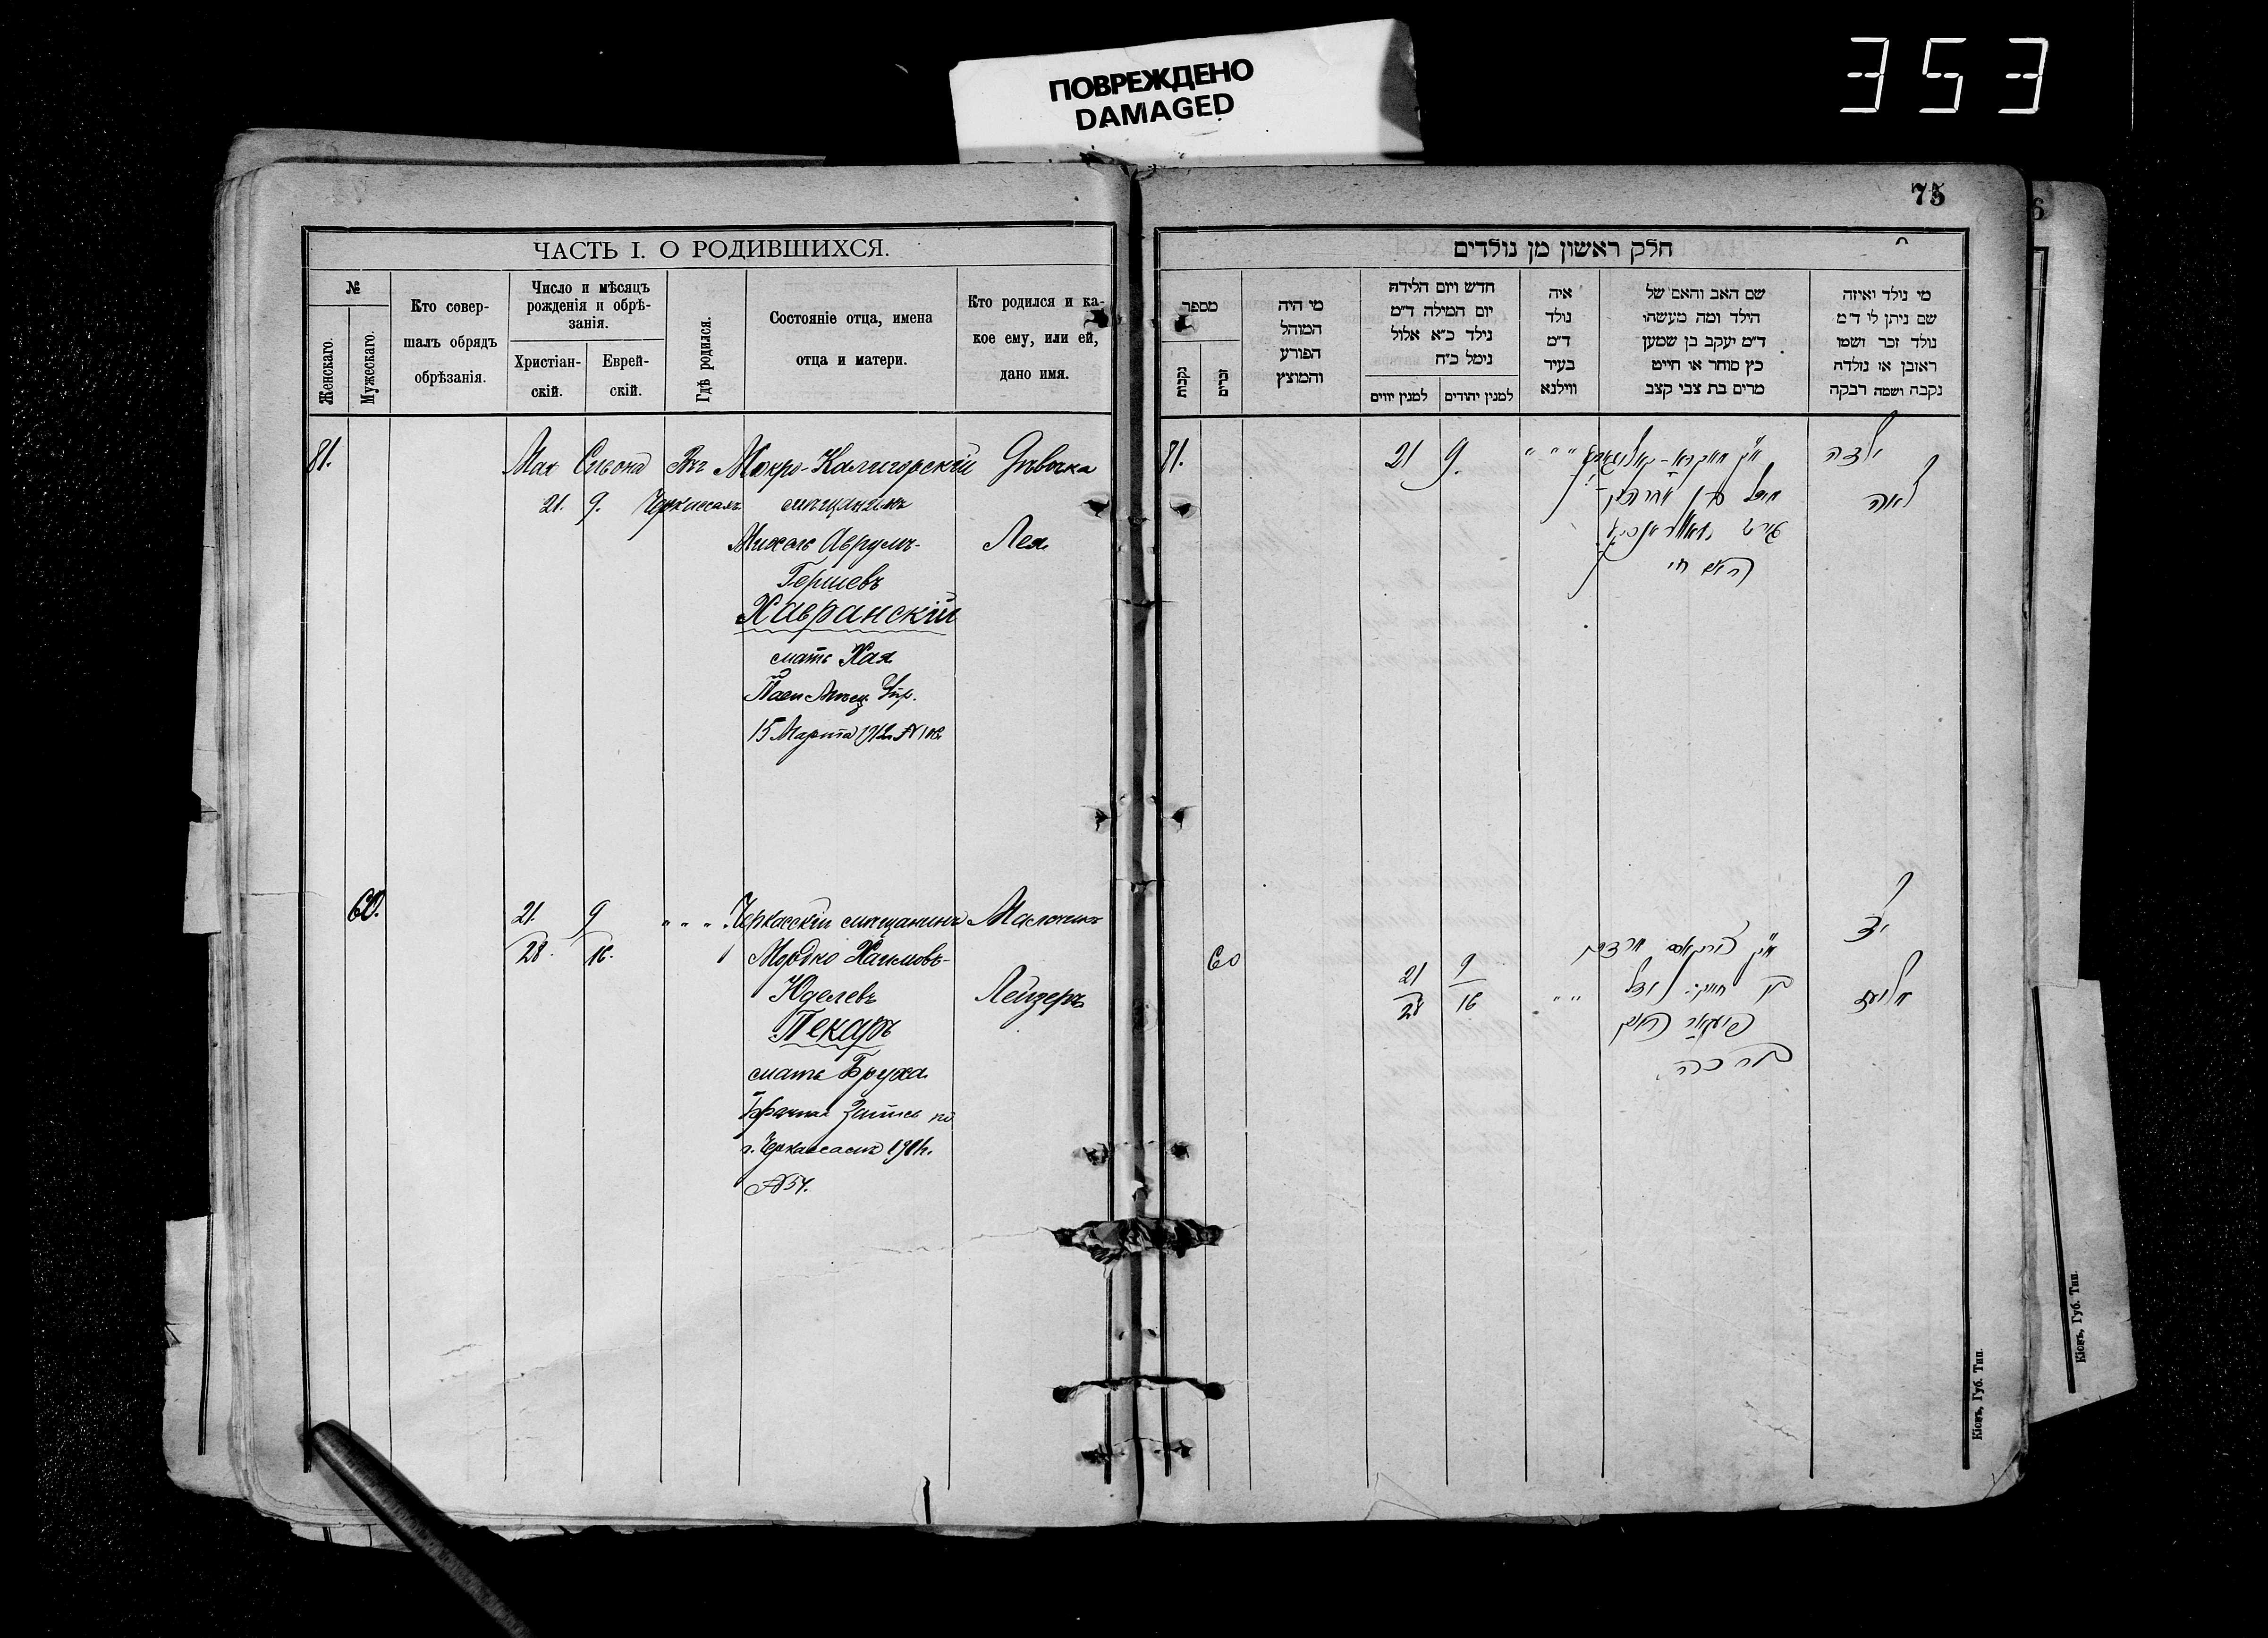 353
ПОВРЕЖДЕНО
DAMAGED
75
ЧАСТЬ I. О РОДИВШИХСЯ.
№
Женскаго.
Мужескаго.
Кто совер-
шалъ обрядъ
обрѣзанія.
Число и мѣсяцъ
рожденія и обрѣ-
занія.
Христіан-
скій.
Еврей-
скій.
Гдѣ родился.
Состояніе отца, имена
отца и матери.
Кто родился и ка-
кое ему, или ей,
дано имя.
81.
Мая
21.
Сивона
9.
Въ
Черкассахъ
Мокро-Калигорскій
мѣщанинъ
Михель Аврумъ-
Гершевъ
Хавранскій
мать Хая
Мѣщ. Упр.
15 Марта 1912
Дѣвочка
Лея
60.
21.
28.
9
16.
" " "
Черкасскій мѣщанинъ
Мордко Хаимовъ-
Юделевъ
Пекарь
мать Бруха
Брачная запись по
г. Черкассамъ
№ 54.
Мальчикъ
Лейзеръ
חלק ראשון מן נולדים
מספר
נקבות
זכרים
מי היה
המוהל
הפורע
והמוצץ
חדש ויום הלידה
יום המילה ד״מ
נילד כ״א אלול
נימל כ״ח
למנין יווים
למנין יהודים
איה
נולד
ד״מ
בעיר
ווילנא
שם האב והאם של
הילד ומה מעשהו
ד״מ יעקב בן שמען
כץ סוחר או חייט
מרים בת צבי קצב
מי נולד ואיזה
שם ניתן לו ד״מ
נולד זכר ושמו
ראובן או נולדה
נקבה ושמה רבקה
81.
21
9.
" " "
האם חי׳
ילדה
לאה
60
21
28
9
16
" "
האם
ברכה
ילד
אליעזר
Кіевъ, Губ. Тип.
6
Кіевъ, Губ. Тип.